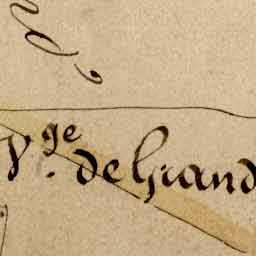 V.ge de Grand